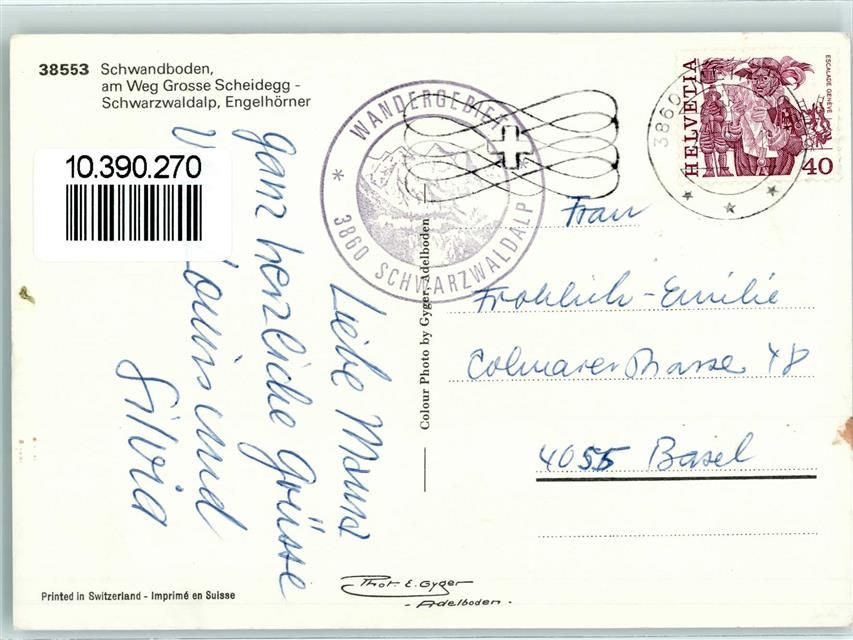 38553 Schwandboden,
am Weg Grosse Scheidegg -
Schwarzwaldalp, Engelhörner
10.390.270
* WANDERGEBIET *
3860 SCHWARZWALDALP
3860
HELVETIA
ESCALADE GENÈVE
40
Liebe Mama
ganz herzliche Grüsse
Louis und
Silvia
Colour Photo by Gyger, Adelboden
Frau
Fröhlich-Emilie
Colmarerstrasse 48
4055 Basel
Phot. E. Gyger
- Adelboden -
Printed in Switzerland - Imprimé en Suisse